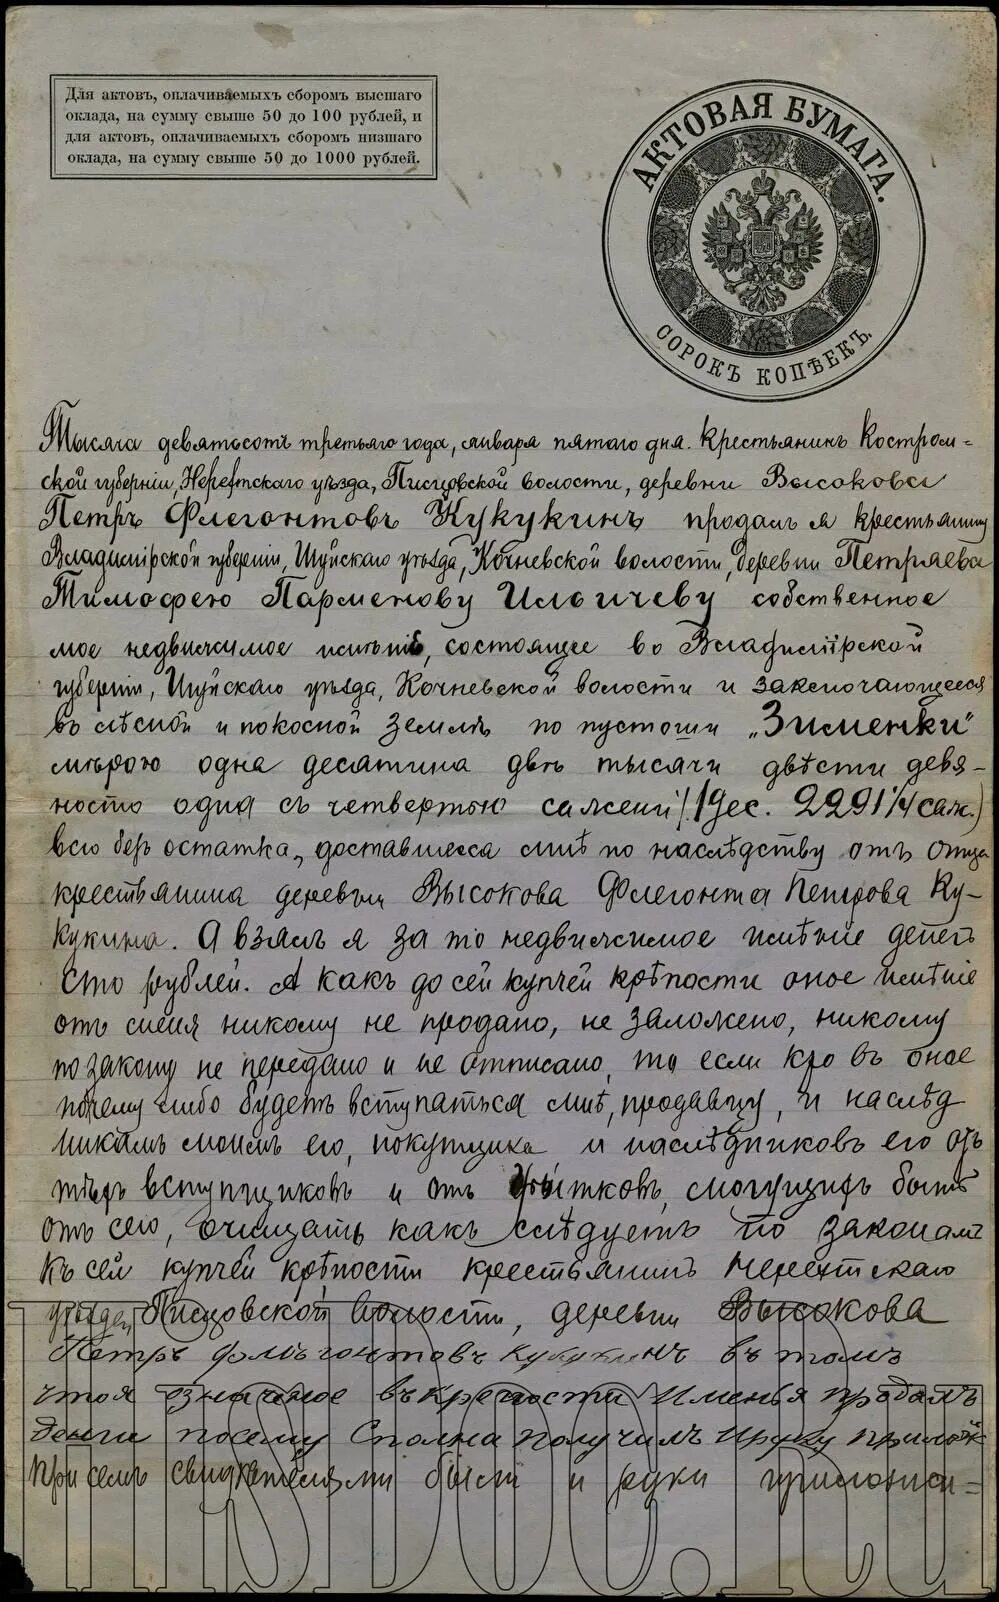 Для актовъ, оплачиваемыхъ сборомъ высшаго
оклада, на сумму свыше 50 до 100 рублей, и
для актовъ, оплачиваемыхъ сборомъ низшаго
оклада, на сумму свыше 50 до 1000 рублей.
АКТОВАЯ БУМАГА.
СОРОКЪ КОПѢЕКЪ.
Тысяча девятьсотъ третьяго года, января пятаго дня. Крестьянинъ Костром=
ской губерніи, Нерехтскаго уѣзда, Писцовской волости, деревни Высокова
Петръ Флегонтовъ Кукукинъ продалъ я крестьянину
Владимірской губерніи, Шуйскаго уѣзда, Кочневской волости, деревни Петряева
Тимофею Парменову Ильичеву собственное
мое недвижимое имѣніе, состоящее во Владимірской
губерніи, Шуйскаго уѣзда, Кочневской волости и заключающееся
въ лѣсной и покосной землѣ по пустоши „Зименки"
мѣрою одна десятина двѣ тысячи двѣсти девя-
носто одна съ четвертью сажени (1 дес. 2291 1/4 саж.)
всю безъ остатка, доставшееся мнѣ по наслѣдству отъ отца
крестьянина деревни Высокова Флегонта Петрова Ку-
кукина. А взялъ я за то недвижимое имѣніе денегъ
сто рублей. А какъ до сей купчей крѣпости оное имѣніе
отъ меня никому не продано, не заложено, никому
по закону не передано и не отписано, то если кто въ оное
почему либо будетъ вступаться мнѣ, продавцу, и наслѣд
никамъ моимъ его, покупщика и наслѣдниковъ его отъ
тѣхъ вступщиковъ и отъ убытковъ, могущихъ быть
отъ сего, очищать какъ слѣдуетъ по законамъ
Къ сей купчей крѣпости крестьянинъ Нерехтскаго
уѣзда, Писцовской волости, деревни Высокова
Петръ Кукукинъ въ томъ
что я означеное въ крепости Именья продалъ
денги посему Сполна получилъ Ируку приложи
При семъ свидѣтелями были и руки приложи=